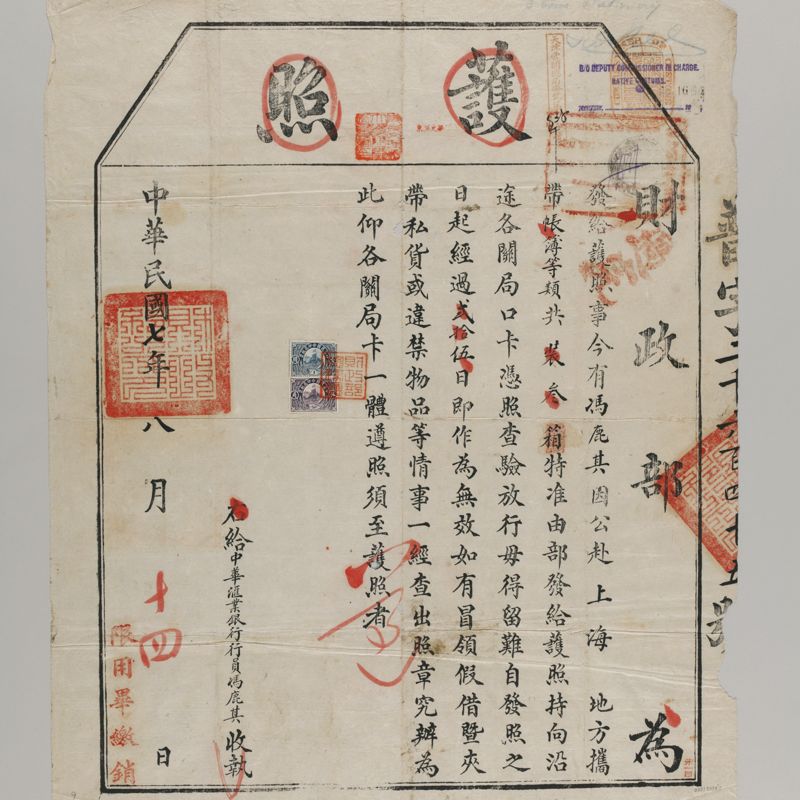 護照
財政部 為
發給護照事今有馮鹿其因公赴 上海 地方攜
帶帳簿等類共裝叁箱特准由部發給護照持向沿
途各關局口卡憑照查驗放行毋得留難自發照之
日起經過貳拾伍日即作為無效如有冒領假借暨夾
帶私貨或違禁物品等情事一經查出照章究辦為
此仰各關局卡一體遵照須至護照者
右給中華滙業銀行行員馮鹿其 收執
中華民國七年八月十四日
限用畢繳銷
B/O DEPUTY COMMISSIONER IN CHARGE.
NATIVE CUSTOMS.